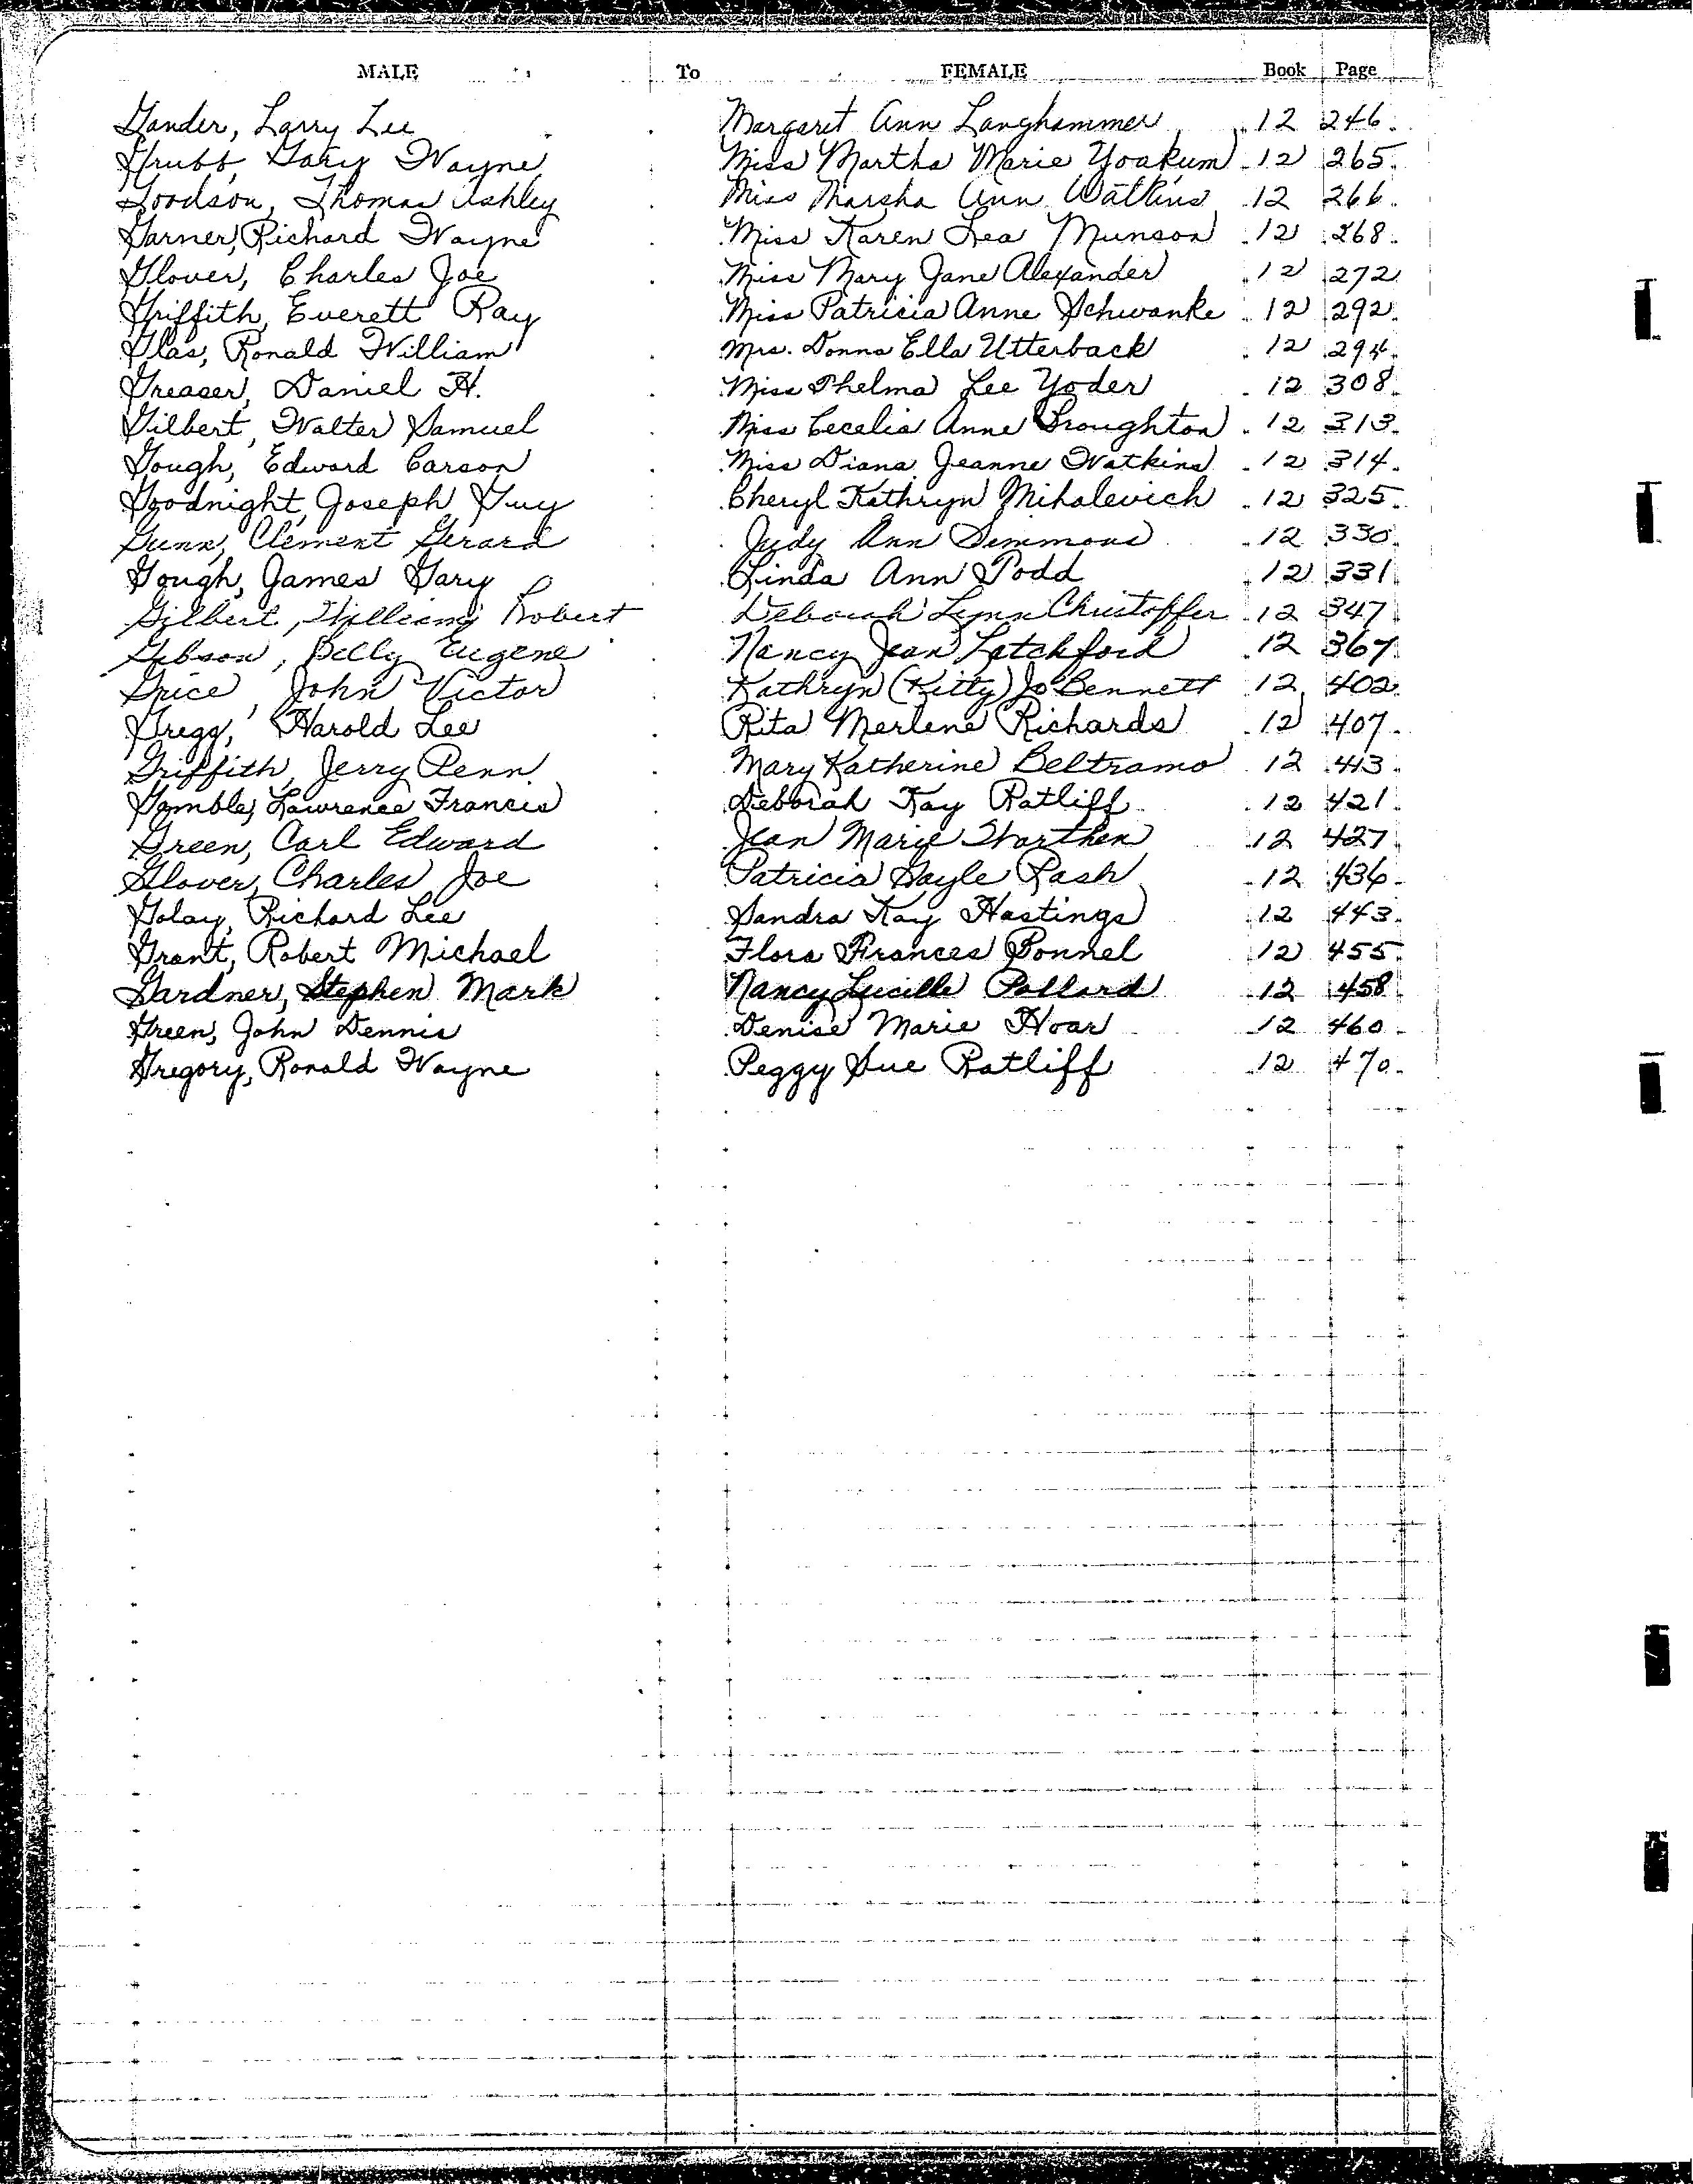 MALE To FEMALE Book Page
Gander, Larry Lee Margaret Ann Langhammer 12 246
Grubb, Gary Wayne Miss Martha Marie Yoakum 12 265
Goodson, Thomas Ashley Miss Marsha Ann Watkins 12 266
Garner, Richard Wayne Miss Karen Lea Munson 12 268
Glover, Charles Joe Miss Mary Jane Alexander 12 272
Griffith, Everett Ray Miss Patricia Anne Schwanke 12 292
Glas, Ronald William Mrs. Donna Ella Utterback 12 294
Greaser, Daniel H. Miss Thelma Lee Yoder 12 308
Gilbert, Walter Samuel Miss Cecelia Anne Broughton 12 313
Gough, Edward Carson Miss Diana Jeanne Watkins 12 314
Goodnight, Joseph Guy Cheryl Kathryn Mihalevich 12 325
Gunn, Clement Gerard Judy Ann Simmons 12 330
Gough, James Gary Linda Ann Todd 12 331
Gilbert, William Robert Deborah Lynn Christoffer 12 347
Gibson, Billy Eugene Nancy Jean Latchford 12 367
Grice, John Victor Kathryn (Kitty) Jo Bennett 12 402
Gregg, Harold Lee Rita Merlene Richards 12 407
Griffith, Jerry Penn Mary Katherine Beltramo 12 413
Gamble, Lawrence Francis Deborah Kay Ratliff 12 421
Green, Carl Edward Jean Marie Worthen 12 427
Glover, Charles Joe Patricia Gayle Rash 12 436
Golay, Richard Lee Sandra Kay Hastings 12 443
Grant, Robert Michael Flora Frances Bonnel 12 455
Gardner, Stephen Mark Nancy Lucille Pollard 12 458
Green, John Dennis Denise Marie Hoar 12 460
Gregory, Ronald Wayne Peggy Sue Ratliff 12 470